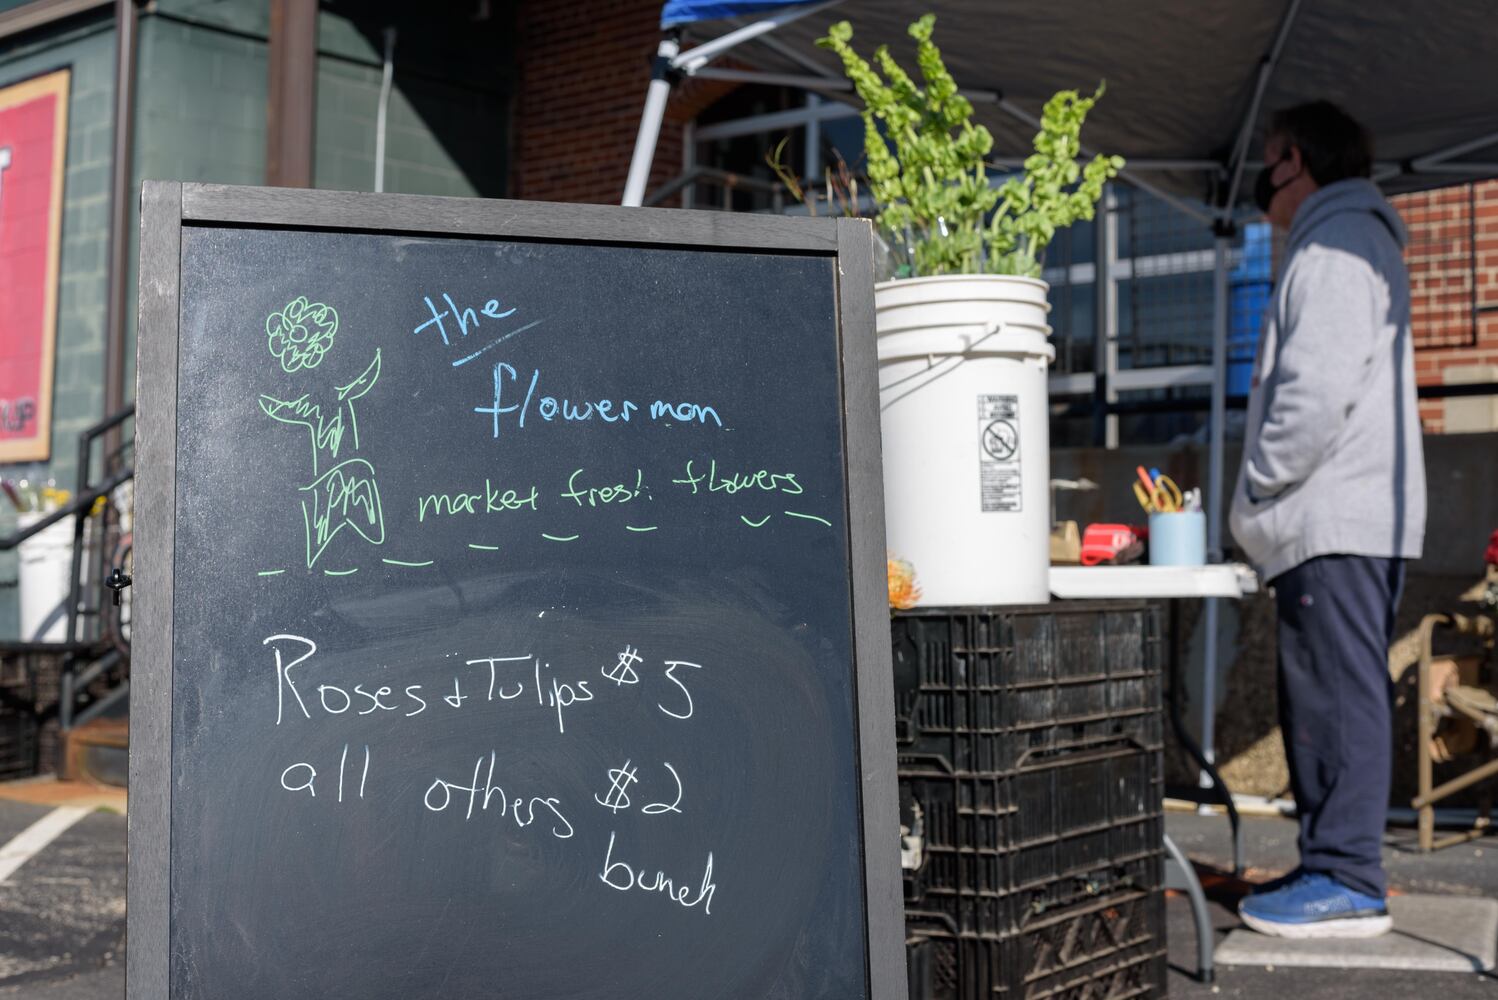 the
flower man
market fresh flowers
Roses & Tulips $5
all others $2
bunch